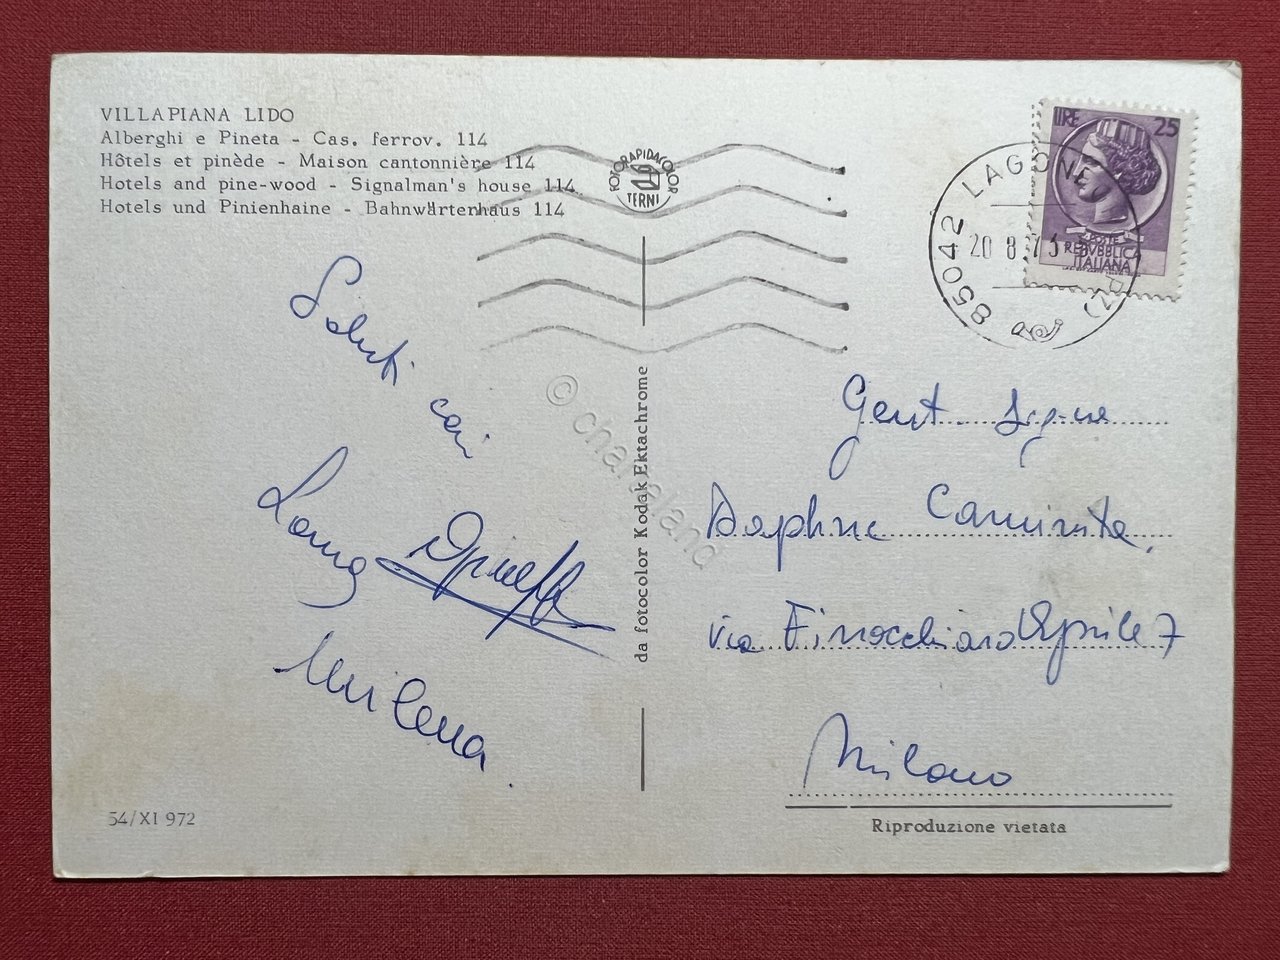 VILLAPIANA LIDO
Alberghi e Pineta - Cas. ferrov. 114
Hôtels et pinède - Maison cantonnière 114
Hotels and pine-wood - Signalman's house 114
Hotels und Pinienhaine - Bahnwärtenhaus 114
FOTORAPIDACOLOR
TERNI
LIRE 25
POSTE
REPVBBLICA
ITALIANA
85042 LAGONEGRO (PZ)
20 8 73
Saluti cari
Milena
da fotocolor Kodak Ektachrome
© charta land
Gent. Sig.na
Daphne Caminita
via Finocchiaro Aprile 7
Milano
54/XI 972
Riproduzione vietata